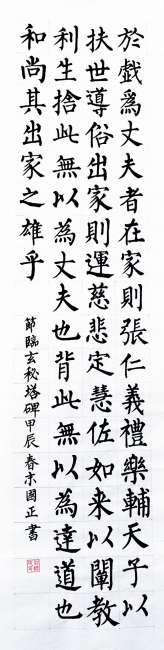 於戲爲丈夫者在家則張仁義禮樂輔天子以
扶世導俗出家則運慈悲定慧佐如来以闡教
利生捨此無以為丈夫也背此無以為達道也
和尚其出家之雄乎
節臨玄秘塔碑甲辰春宋國正書